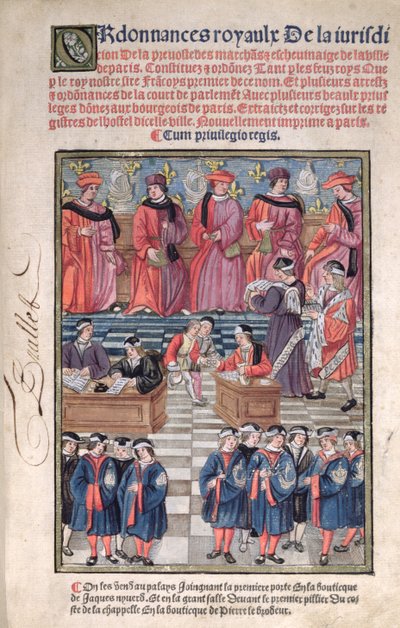 ORdonnances royaulx De la iurisdi
cion De la preuoste des marchãs ⁊ escheuinaige de la ville
de paris. Constituez ⁊ ordõnez Tant p les feuz roys Que
p le roy nostre sire Frãcoys premier de ce nom. Et plusieurs arrestz
⁊ ordõnances de la court de parlemẽt Avec plusieurs beaulx priui
leges dõnez aux bourgeois de paris. Extraictz et corrigez sur les re
gistres de lhostel dicelle ville. Nouuellement imprime a paris.
¶ Cum priuilegio regis.
¶ On les vẽd au palays Joingnant la premiere porte En la bouticque
de Jaques nyuerd. Et en la grant salle Deuant le premier pillier Du co
ste de la chappelle En la bouticque de Pierre le brodeur.